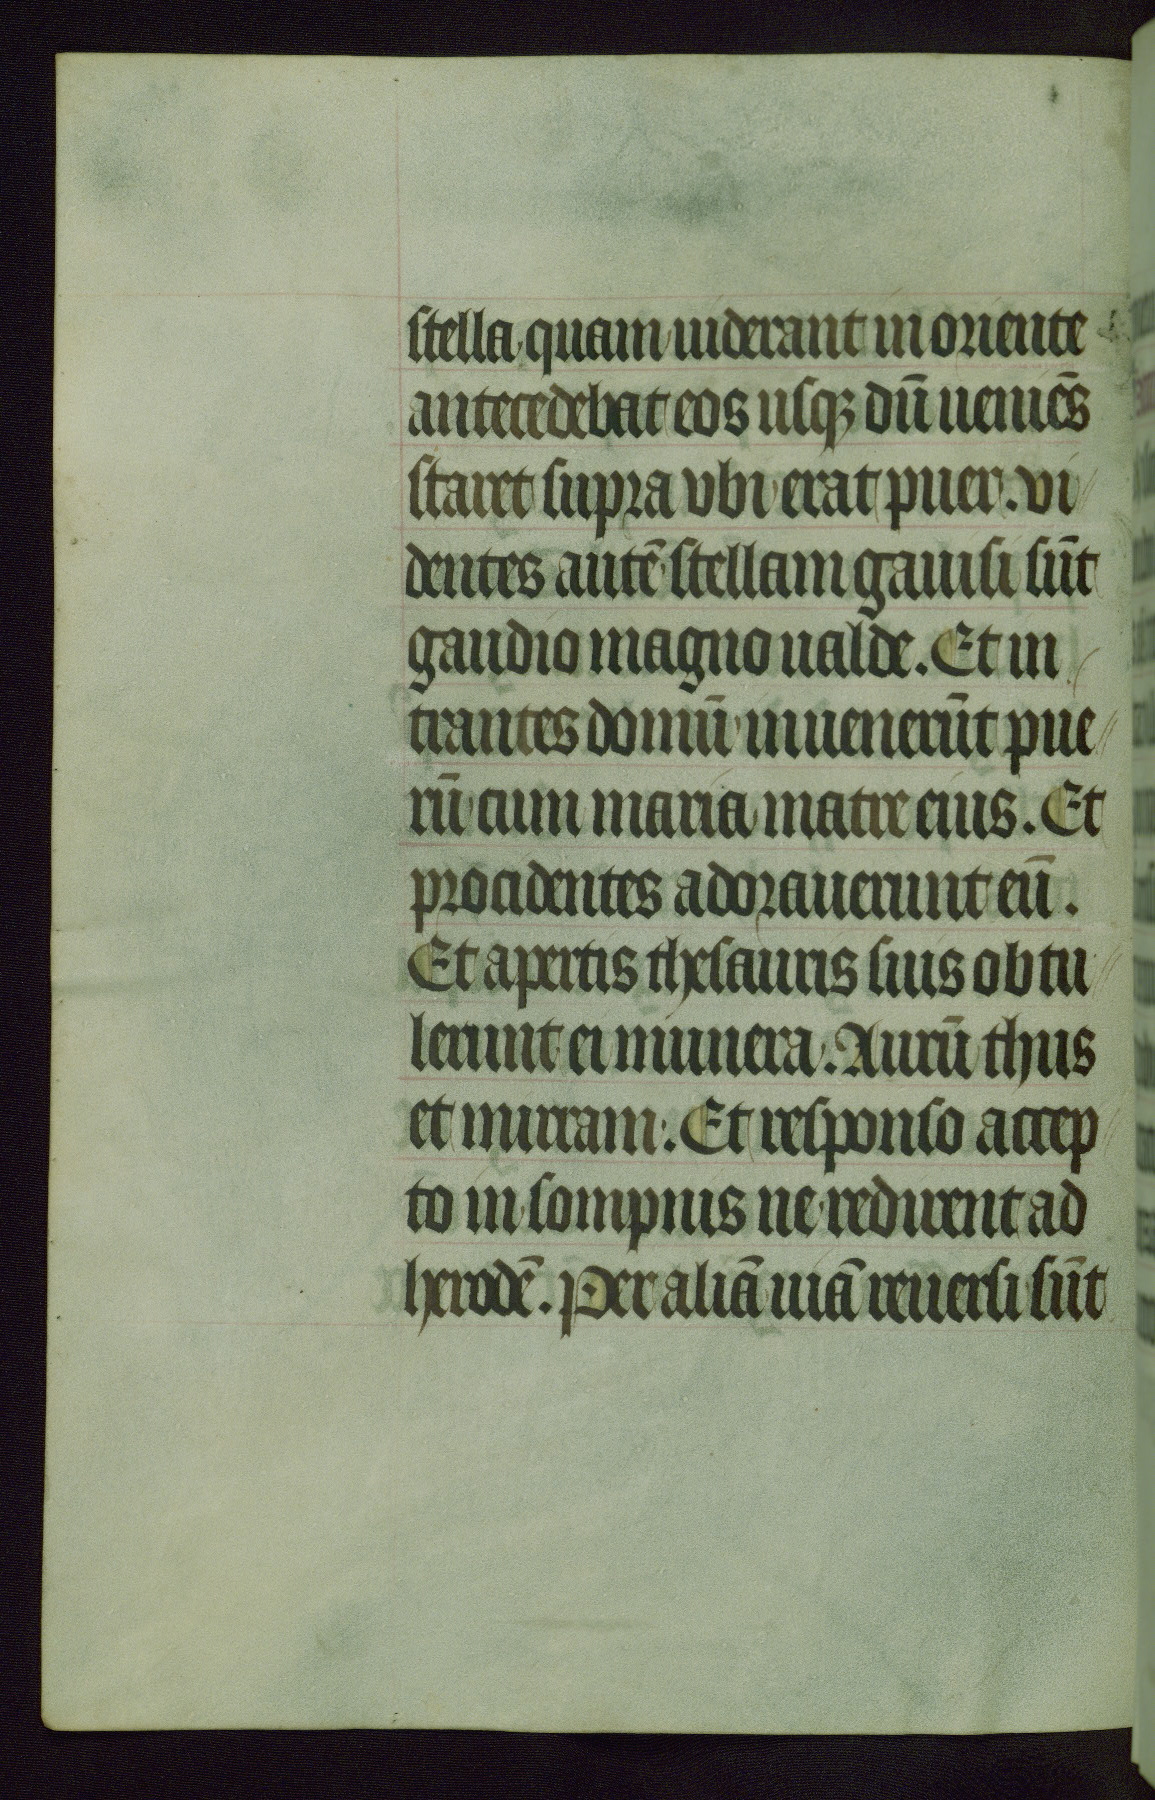 stella quam uiderant in oriente
antecedebat eos usqꝫ dū ueniēs
staret supra vbi erat puer. vi
dentes autē stellam gauisi sūt
gaudio magno ualde. Et in
trantes domū inuenerūt pue
rū cum maria matre eius. Et
procidentes adorauerunt eū.
Et apertis thesauris suis obtu
lerunt ei munera. Aurū thus
et mirram. Et responso accep
to in sompnis ne redirent ad
herodē. Per aliā uiā reuersi sūt